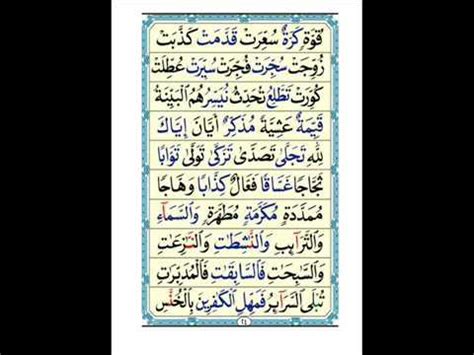 قُوَّةٍ كَرَّةٌ سُعِّرَتْ قَدَّمَتْ كَذَّبَتْ
زُوِّجَتْ سُجِّرَتْ فُجِّرَتْ سُيِّرَتْ عُطِّلَتْ
كُوِّرَتْ تَطَّلِعُ تُحَدِّثُ نُيَسِّرُ هُمُ الْبَيِّنَةُ
قَيِّمَةٌ عَشِيَّةً مُذَكِّرٌ أَيَّانَ إِيَّاكَ
لِلّٰهِ تَجَلّٰى تَصَدّٰى تَزَكّٰى تَوَلّٰى تَوَّابًا
ثَجَّاجًا غَسَّاقًا فَعَّالٌ كِذَّابًا وَهَّاجًا
مُمَدَّدَةٍ مُكَرَّمَةٍ مُطَهَّرَةٍ وَالسَّمَآءِ
وَالتَّرَآئِبِ وَالنّٰشِطٰتِ وَالنّٰزِعٰتِ
وَالسّٰبِحٰتِ فَالسّٰبِقٰتِ فَالْمُدَبِّرٰتِ
تُبْلَى السَّرَآئِرُ فَمَهِّلِ الْكٰفِرِيْنَ بِالْخُنَّسِ
٢٤